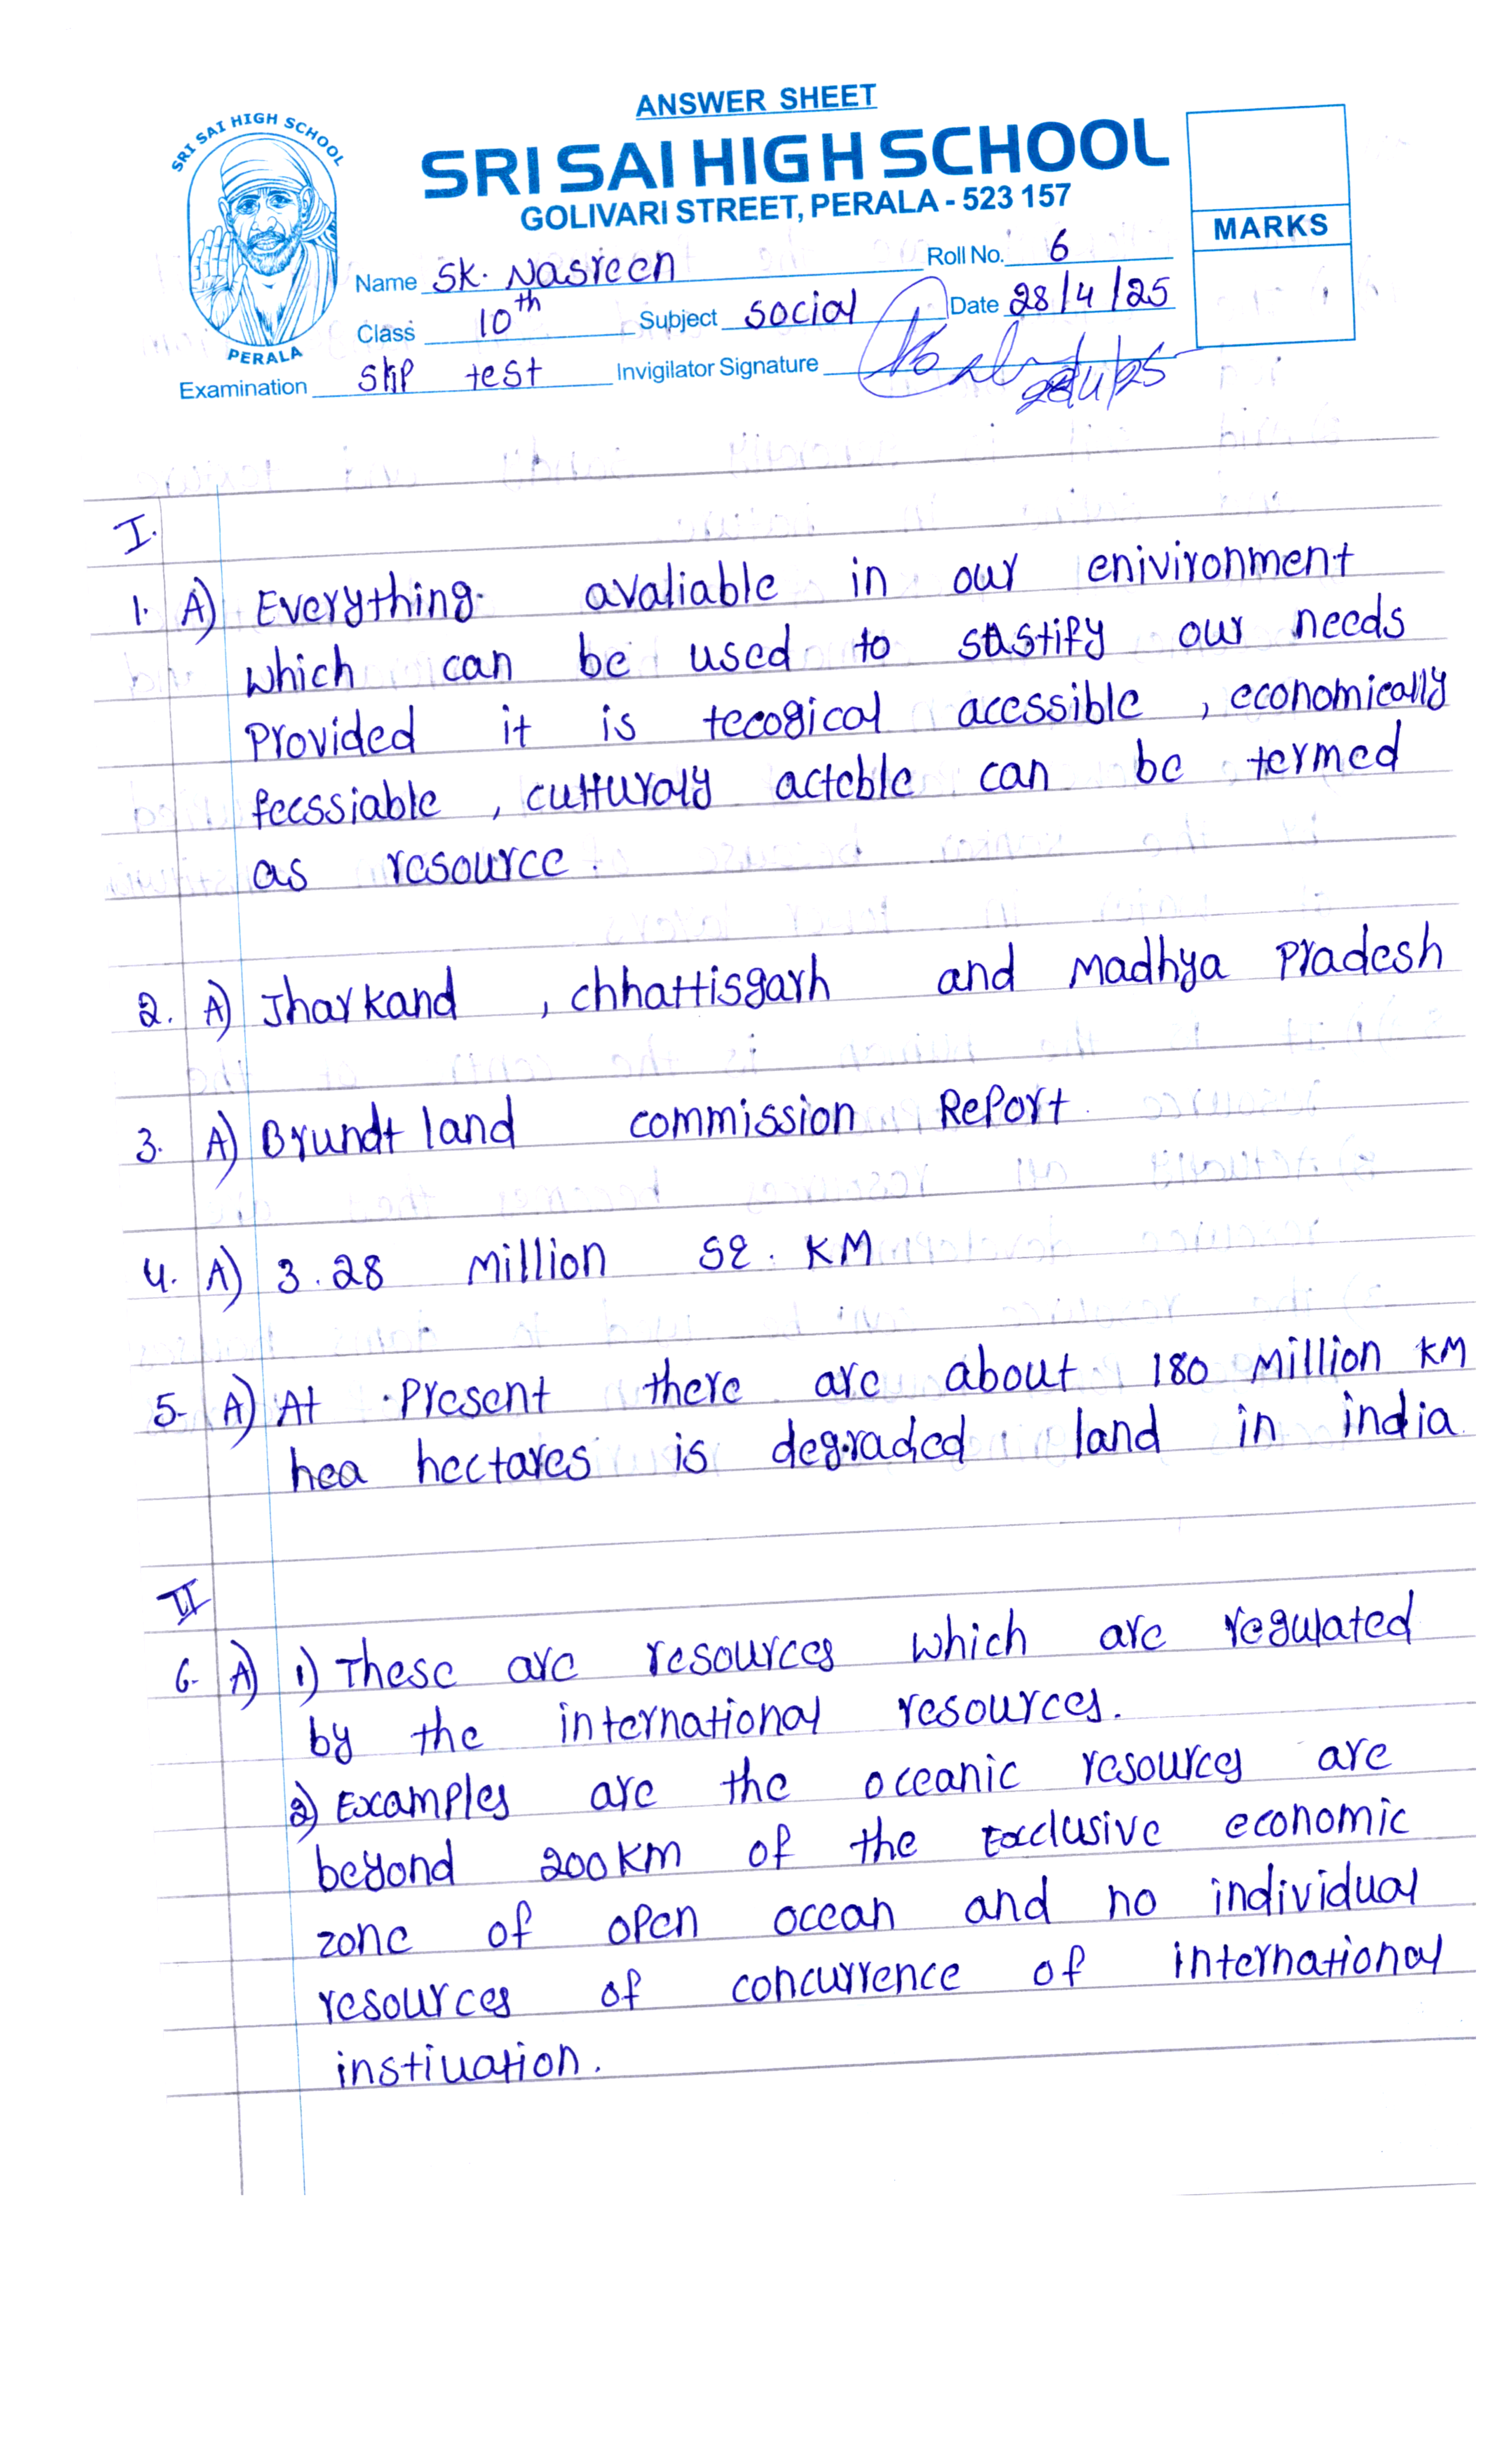 ANSWER SHEET
SRI SAI HIGH SCHOOL
SRI SAI HIGH SCHOOL
GOLIVARI STREET, PERALA - 523 157
PERALA
MARKS
Name Sk. Nasreen Roll No. 6
Class 10th Subject social Date 28/4/25
Examination slip test Invigilator Signature 28/4/25
I.
1. A) Everything avaliable in our enivironment
which can be used to sastify our needs
Provided it is tecogical acessible , economically
feessiable , culturaly acteble can be termed
as resource.
2. A) Jharkand , chhattisgarh and Madhya Pradesh
3. A) Brundt land commission Report
4. A) 3.28 Million SQ. KM
5. A) At Present there are about 180 Million KM
hea hectares is degraded land in india
II
6. A) 1) These are resources which are regulated
by the international resources.
2) Examples are the oceanic resources are
beyond 200KM of the Exclusive economic
zone of open ocean and no individual
resources of concurrence of international
instiuation.